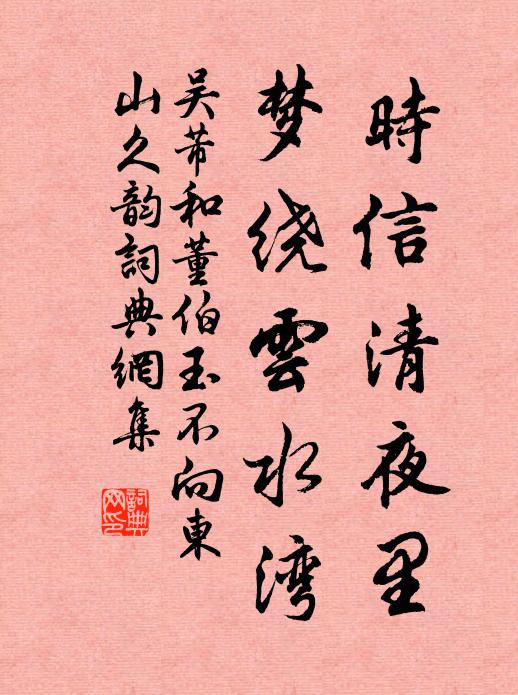 時信清夜里
梦绕雲水湾
吴芾和董伯玉不向東
山久韵詞典網集
詞典网印